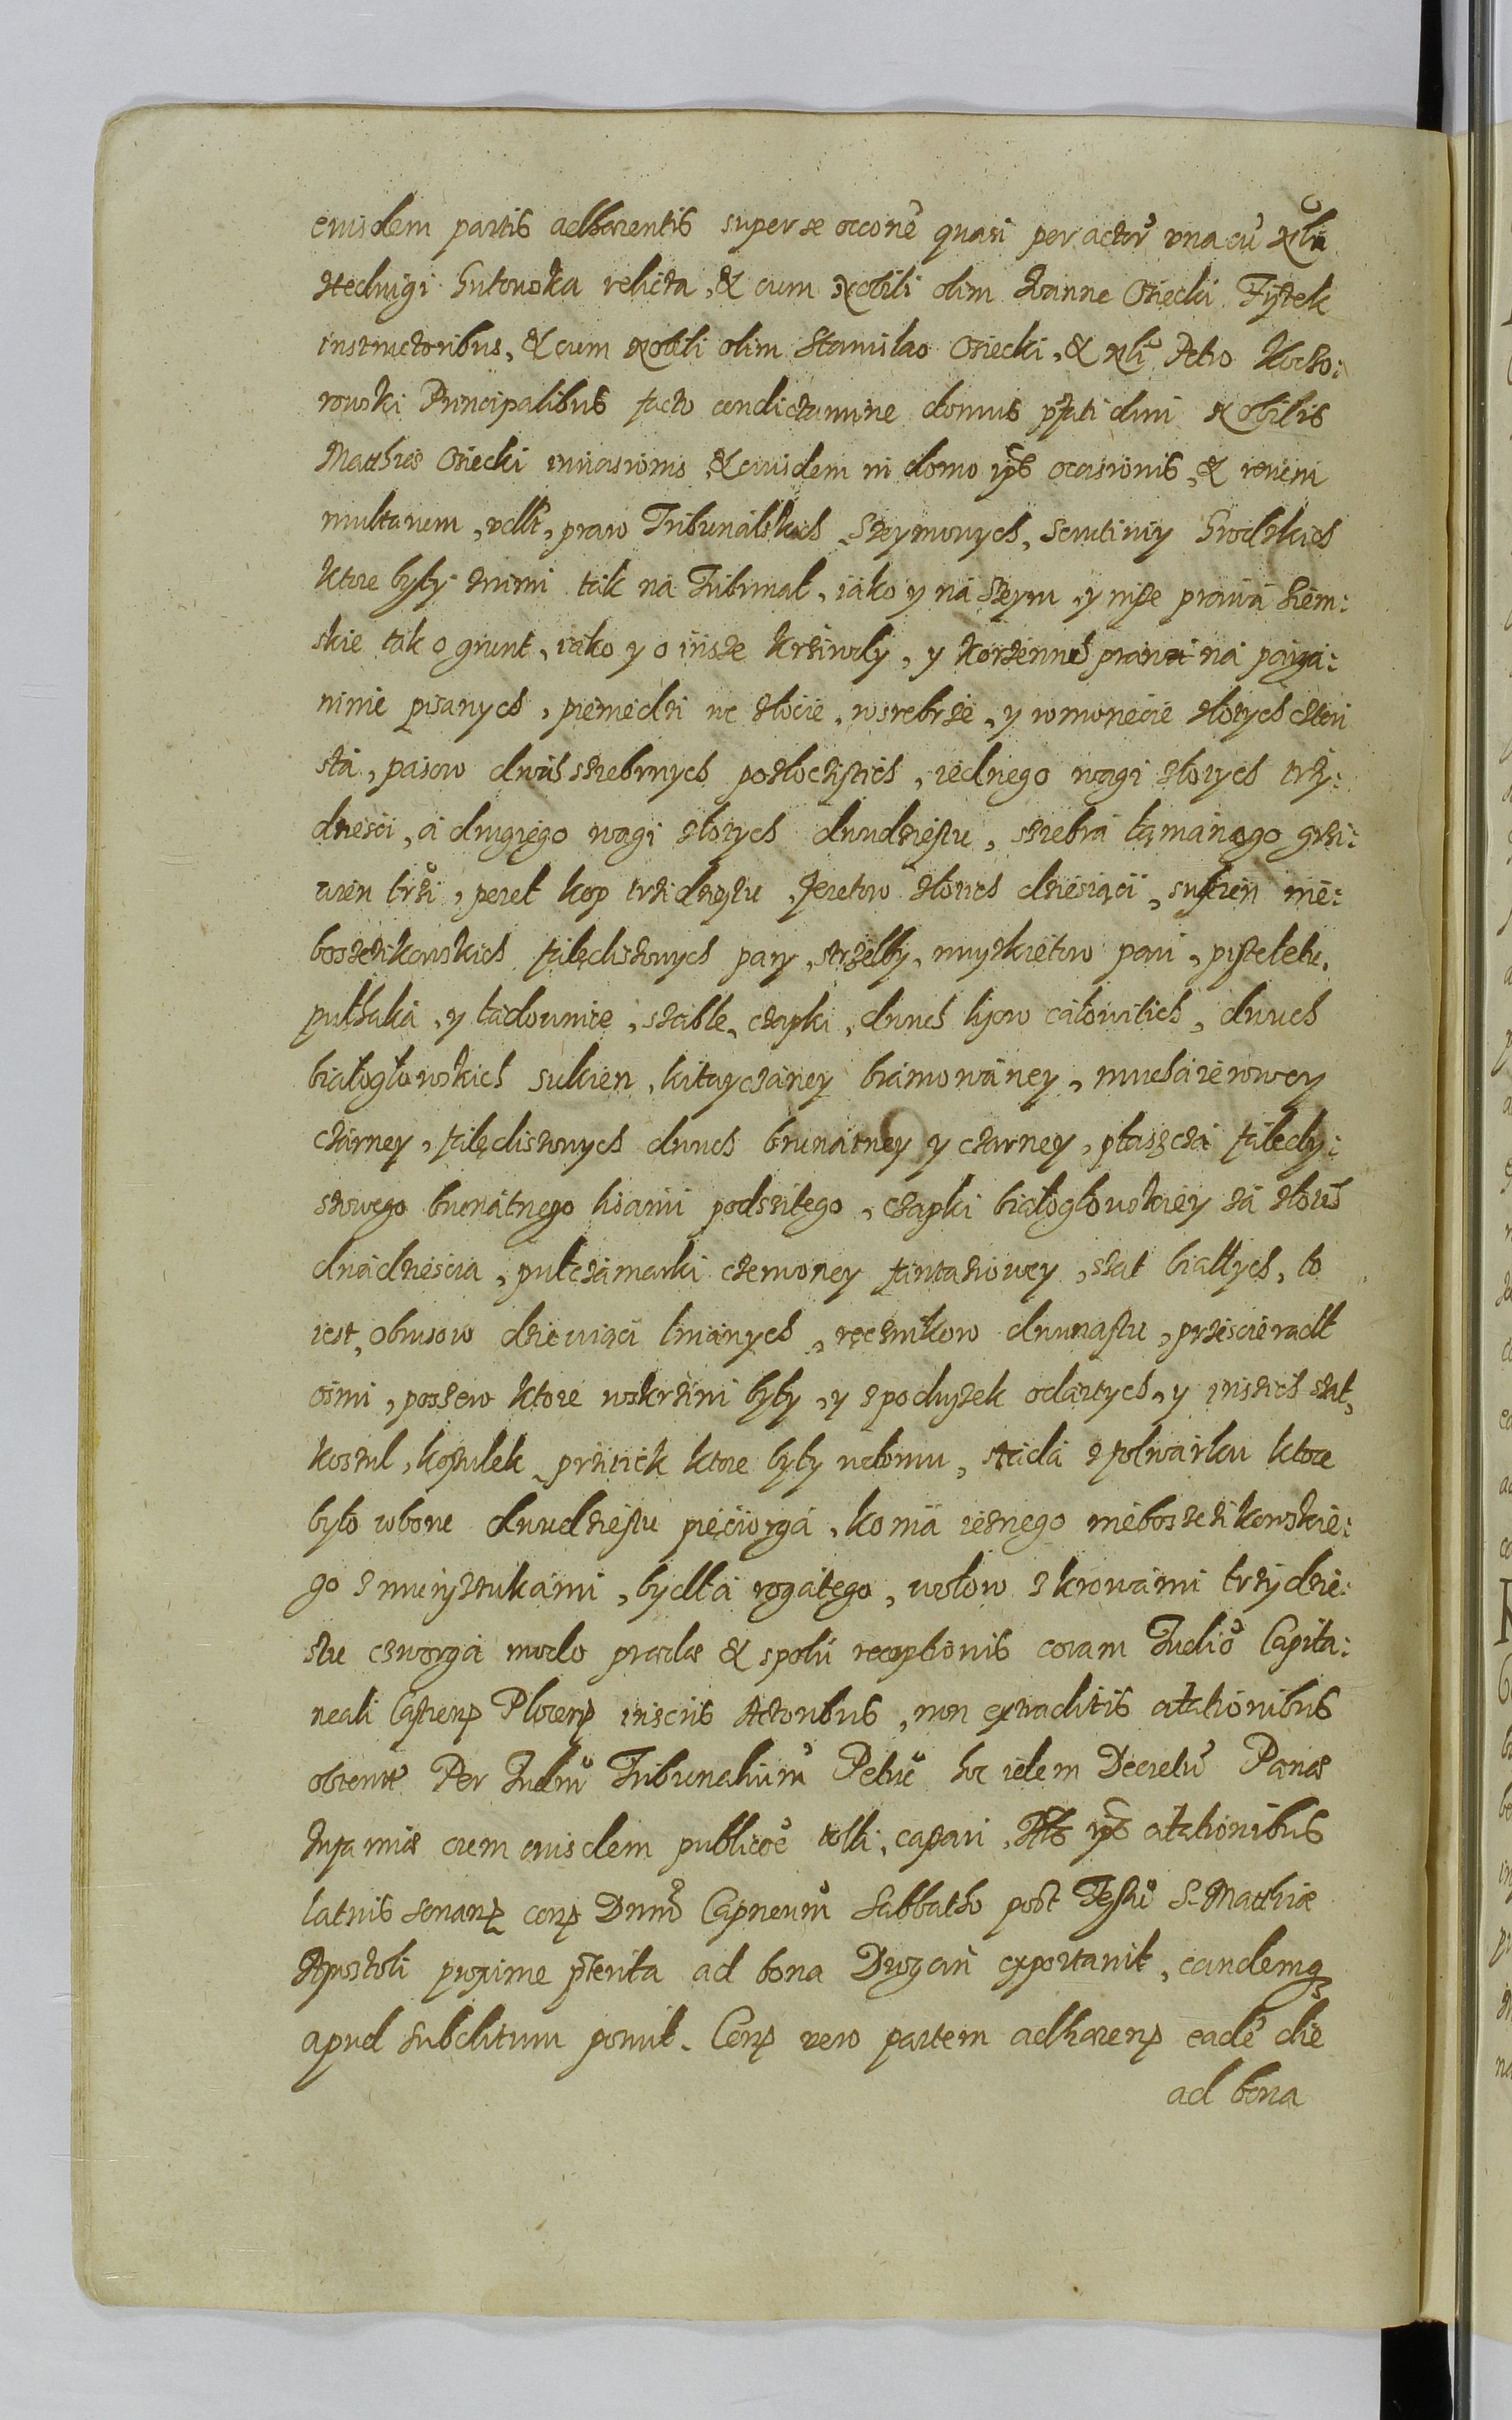 eiusdem partis adhærentis super se occone͂ quasi per actor͂ vna cu͂ Nli͂
Hedvigi Gutowska relicta, & cum Nobili olim Ioanne Osiecki Fijtek
instructoribus, & cum Nobili olim Stanislao Osiecki, & Nli͂ Petro Kocho:
rowski Principalibus facto condictamine domus pfati dni Nobilis
Matthiæ Osiecki inuasionis & eiusdem in domo ips͂ occisionis, & rerum
multarum, vdlt, praw Tribunálskich Seymowych, Scrutiniy Grodzkich
ktore były znimi ták ná Tribunał, iáko y ná Seym, y insze práwá Ziem:
skie ták o grunt, iáko y o insze krziwdy, y korzennes práwá ná párga:
minie pisanych, pieniedzi we złocie, wsrebrze, y w monecie złotych cztéri
stá, pasow dwuch srzebrnych pozłocistich, iednego wagi złotych trzy:
dziesci, á drugięgo wagi złotych dwudziestu, srzebrá łamánego grzi:
wien trzi, pereł kop trzidziestu, feretow złotich dziesiąci, sukien nie:
boszczikowskich fálędiszowych pary, strzelby, muszkietow pari, pistoletu,
pulháká, y ládownice, száble, czapki, dwuch łyow cáłowitich, dwuch
białogłowskich sukien, kitayczáney brámowáney, mucháierowey
czárney, fálędiszowych dwuch brunátney y czarney, płaszczá fáledy:
szowego brunátnego lisámi podszitego, czapki białogłowskiéy zá złotich
dwádzieścia, pułczámarki czerwoney fántaziowey, szat białłych, to
iest, obrusow dziewiąci lniánych, ręcznikow dwunastu, prześcieradł
osmi, poszew ktore wskrzini były, y z poduszek odártych, y inszich szat,
koszul, koszulek, przitick ktore były wdomu, stádá z folwárku ktore
było wborze dwudziestu pięciorgá, koniá iezneg̨o nieboszczikowskié:
go z muny sztukámi, bydłá rogátego, wołow z krowámi trzydzie:
stu czworgá modo prædæ & spolii receptionis coram Iudio͂ Capita:
neali Castren͂ Plocen͂ insciis Actoribus, non extraditis citationibus
obtenti͂ Per Iudiu͂ Tribunaliu͂m Petric͂ hoc idem Decretu͂ Pœnæ
Infamiæ cum eiusdem publicoe͂ tolli, cassari, Hts͂ ips͂ citationibus
latius sonan͂ con͂ Dnum͂ Capneum͂ Sabbatho post Festu͂ S. Matthiæ
Apostoli proxime p͂terita ad bona Drogan exportauit, eandemq́ꝫ
apud Subditum posuit. Con͂ vero partem adhæren͂ eade͂ die
ad bona